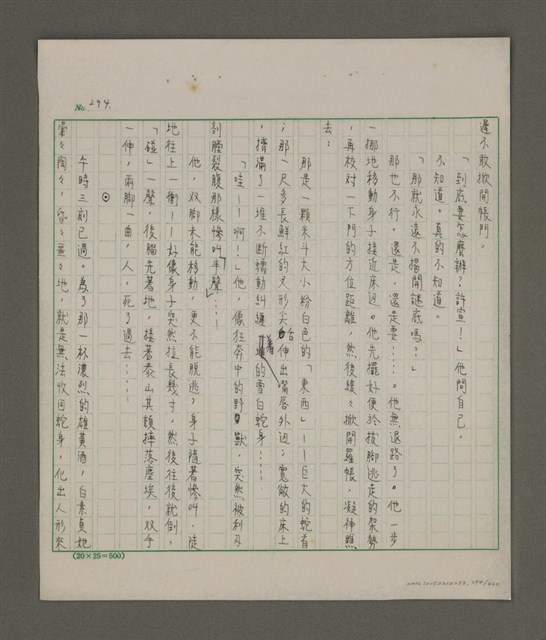 No. 294.
還不敢掀開帳門。
「到底要怎麼辦?許宣!」他問自己。
不知道。真的不知道。
「那就永遠不揭開謎底嗎?」
那也不行。還是,還是要……。他無退路了。他一步
一挪地移動身子接近床邊。他先擺好便於拔腳逃走的架勢
,再校對一下門的方位距離,然後緩々掀開羅帳,凝神瞧
去:
那是一顆米斗大小粉白色的「東西」——巨大的蛇首
;那一尺多長鮮紅的叉形尖舌伸出嘴唇外邊;寬敞的床上
,擠滿了一堆不斷蠕動糾纏著的雪白蛇身……
「哇——啊!」他,像狂奔中的野獸,突然被利刃
剖膛裂腹那樣慘叫半聲……
他,双腳未能移動,更不能脫逃;身子隨著慘叫,徒
地往上一衝——好像身子突然拉長幾寸,然後往後就倒,
「碰」一聲,後腦先著地,接著泰山其頹摔落塵埃,双手
一伸,兩腳一曲,人,死了過去……
⊙
午時三刻已過。為了那一杯濃烈的雄黃酒,白素貞她
暈々陶々,昏々噩々地,就是無法收回蛇身,化出人形來
(20×25=500)